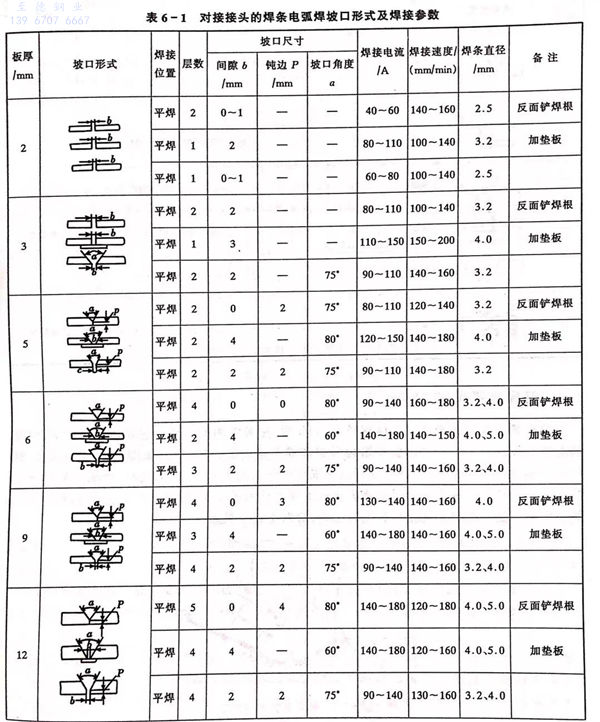 至德钢业
139 6707 6667
表 6-1 对接接头的焊条电弧焊坡口形式及焊接参数
板厚/mm 坡口形式 焊接位置 层数 坡口尺寸 焊接电流/A 焊接速度/(mm/min) 焊条直径/mm 备 注
间隙 b/mm 钝边 P/mm 坡口角度 a
2 b 平焊 2 0～1 — — 40～60 140～160 2.5 反面铲焊根
b 平焊 1 2 — — 80～110 100～140 3.2 加垫板
b 平焊 1 0～1 — — 60～80 100～140 2.5
3 b 平焊 2 2 — — 80～110 100～140 3.2 反面铲焊根
b 平焊 1 3 — — 110～150 150～200 4.0 加垫板
a b 平焊 2 2 — 75° 90～110 140～160 3.2
5 a P 平焊 2 0 2 75° 80～110 120～140 3.2 反面铲焊根
a b 平焊 2 4 — 80° 120～150 140～180 4.0 加垫板
a P c 平焊 2 2 2 75° 90～110 140～180 3.2
6 a P 平焊 4 0 0 80° 90～140 160～180 3.2、4.0 反面铲焊根
a b 平焊 2 4 — 60° 140～180 140～150 4.0、5.0 加垫板
a P b 平焊 3 2 2 75° 90～140 140～160 3.2、4.0
9 a P 平焊 4 0 3 80° 130～140 140～160 4.0 反面铲焊根
a b 平焊 3 4 — 60° 140～180 140～160 4.0、5.0 加垫板
a P b 平焊 4 2 2 75° 90～140 140～160 3.2、4.0
12 a P 平焊 5 0 4 80° 140～180 120～180 4.0、5.0 反面铲焊根
a b 平焊 4 4 — 60° 140～180 120～160 4.0、5.0 加垫板
a P b 平焊 4 2 2 75° 90～140 130～160 3.2、4.0